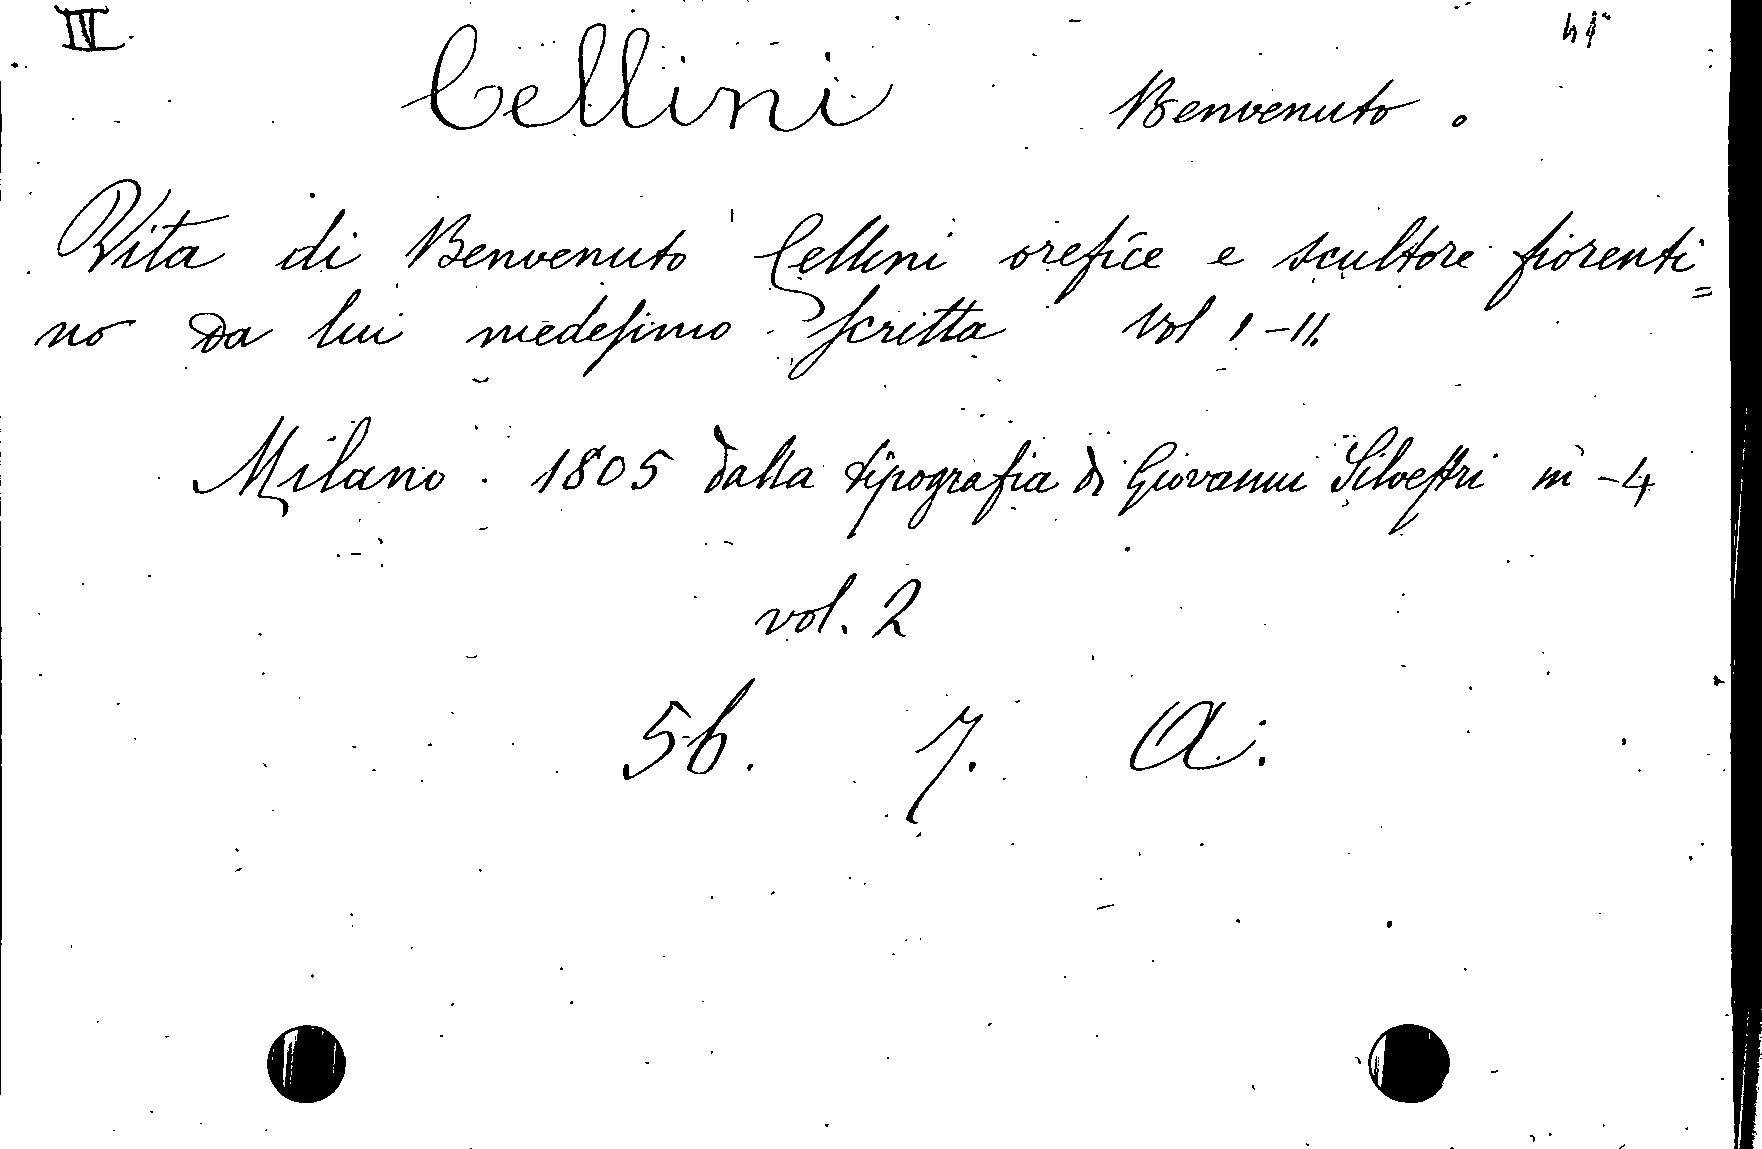 IV.
Cellini Benvenuto.
Vita di Benvenuto Cellini orefice e scultore fiorenti=
no da lui medesimo scritta Vol I-II.
Milano. 1805 dalla tipografia di Giovanni Silvestri in-4
vol. 2
56. 7. A.